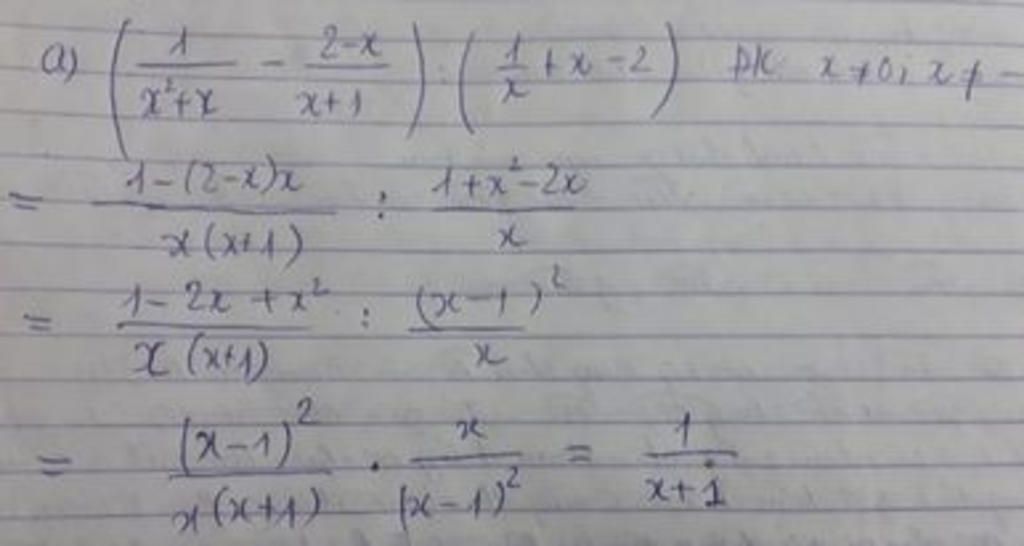 a) (1/(x²+x) - (2-x)/(x+1)) : (1/x + x - 2) ĐK: x≠0; x≠-
= (1-(2-x)x)/(x(x+1)) : (1+x²-2x)/x
= (1-2x+x²)/(x(x+1)) : (x-1)²/x
= (x-1)²/(x(x+1)) . x/(x-1)² = 1/(x+1)